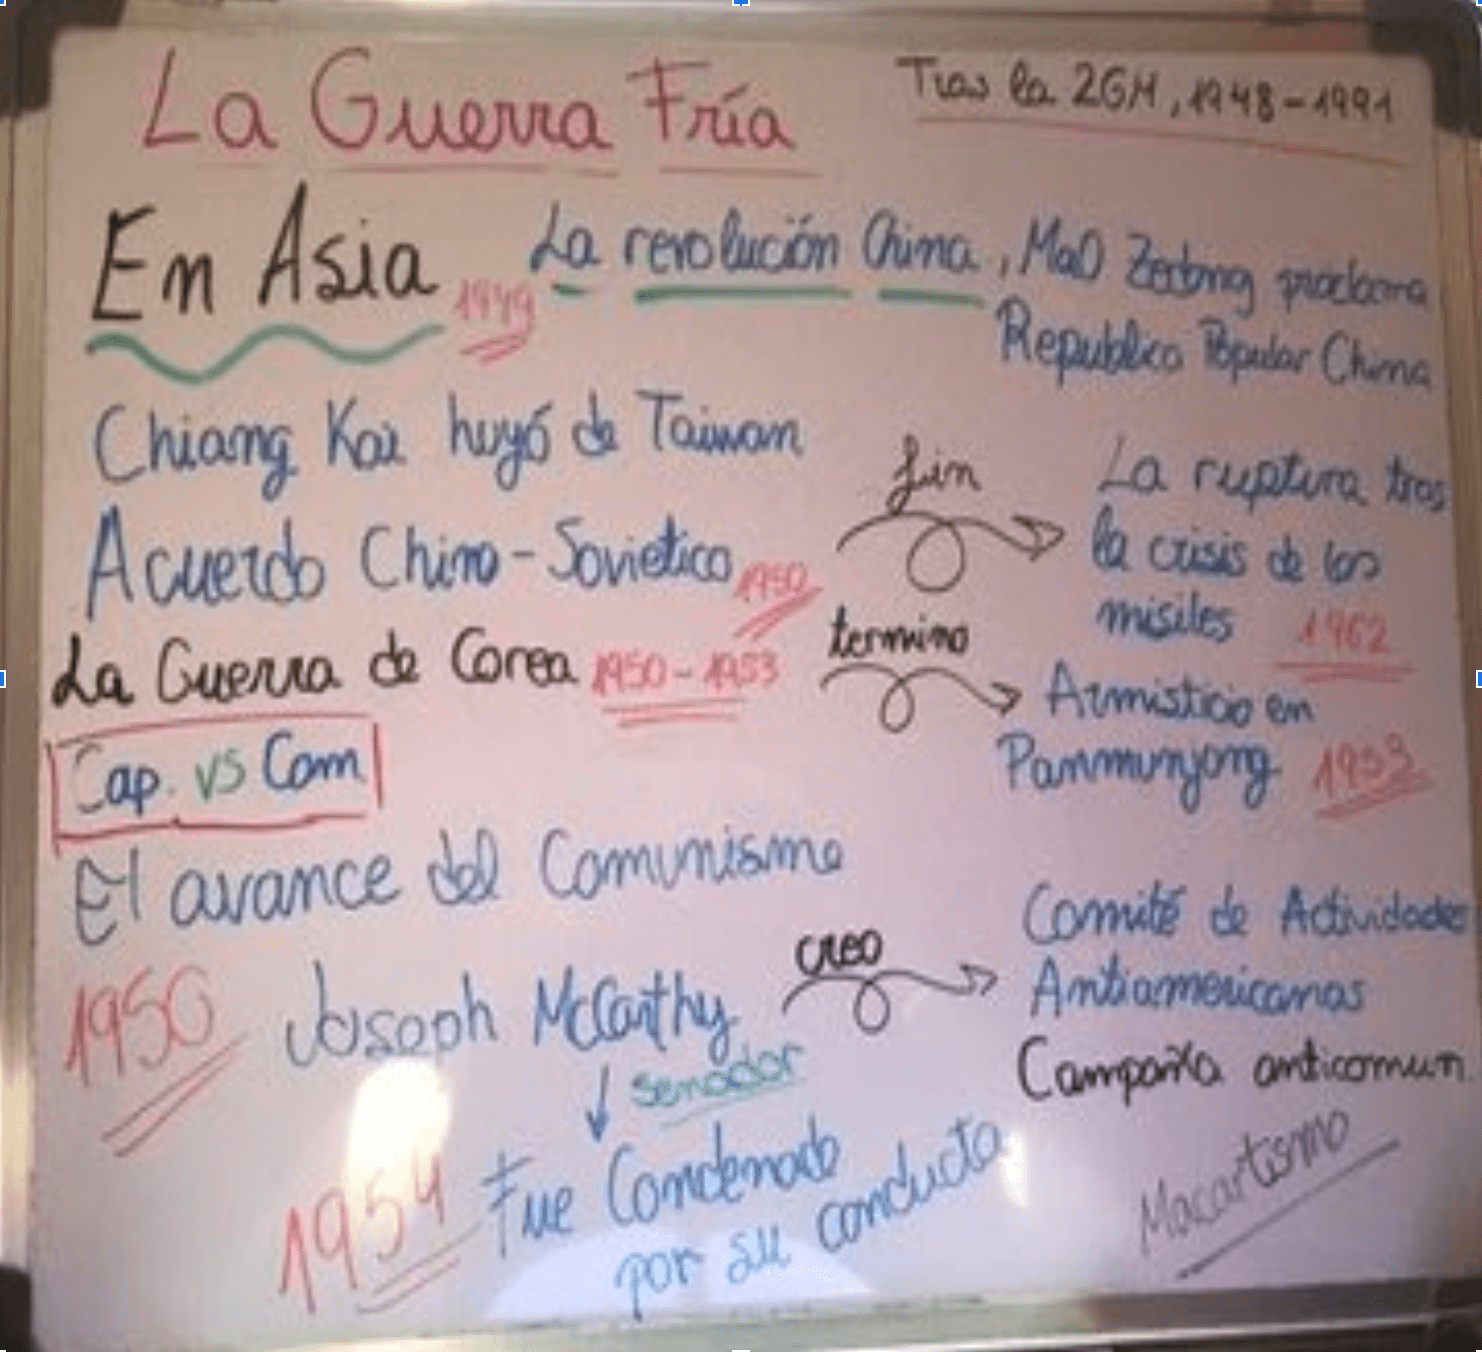 La Guerra Fría
Tras la 2GM, 1948-1991
En Asia
1949
La revolución China, Mao Zedong proclama
Republica Popular China
Chiang Kai huyó de Taiwan
Acuerdo Chino-Sovietico 1950
fin
La ruptura tras
la crisis de los
misiles 1962
La Guerra de Corea 1950-1953
termino
Armisticio en
Panmunjong 1953
Cap. vs Com
El avance del Comunismo
1950
Joseph McCarthy
senador
creo
Comité de Actividades
Antiamericanas
Campaña anticomun.
Macartismo
1954
Fue Condenado
por su conducta